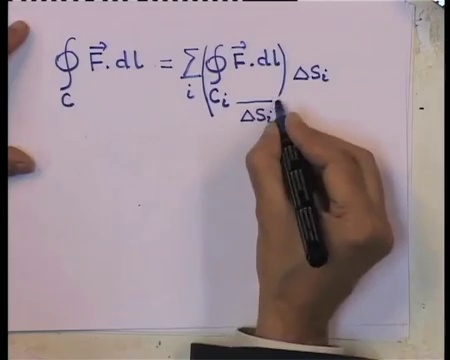 ∮_C F⃗.dl = Σ_i (∮_{C_i} F⃗.dl / ΔS_i) ΔS_i